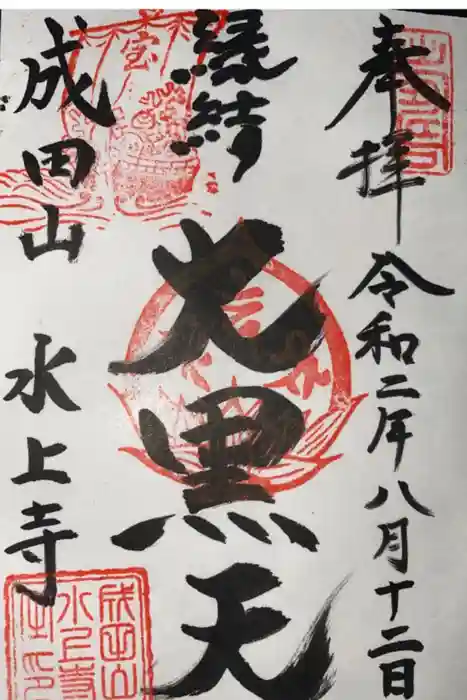 奉拝 令和二年八月十二日
縁結
大黒天
成田山 水上寺
宝
成田山
水上寺